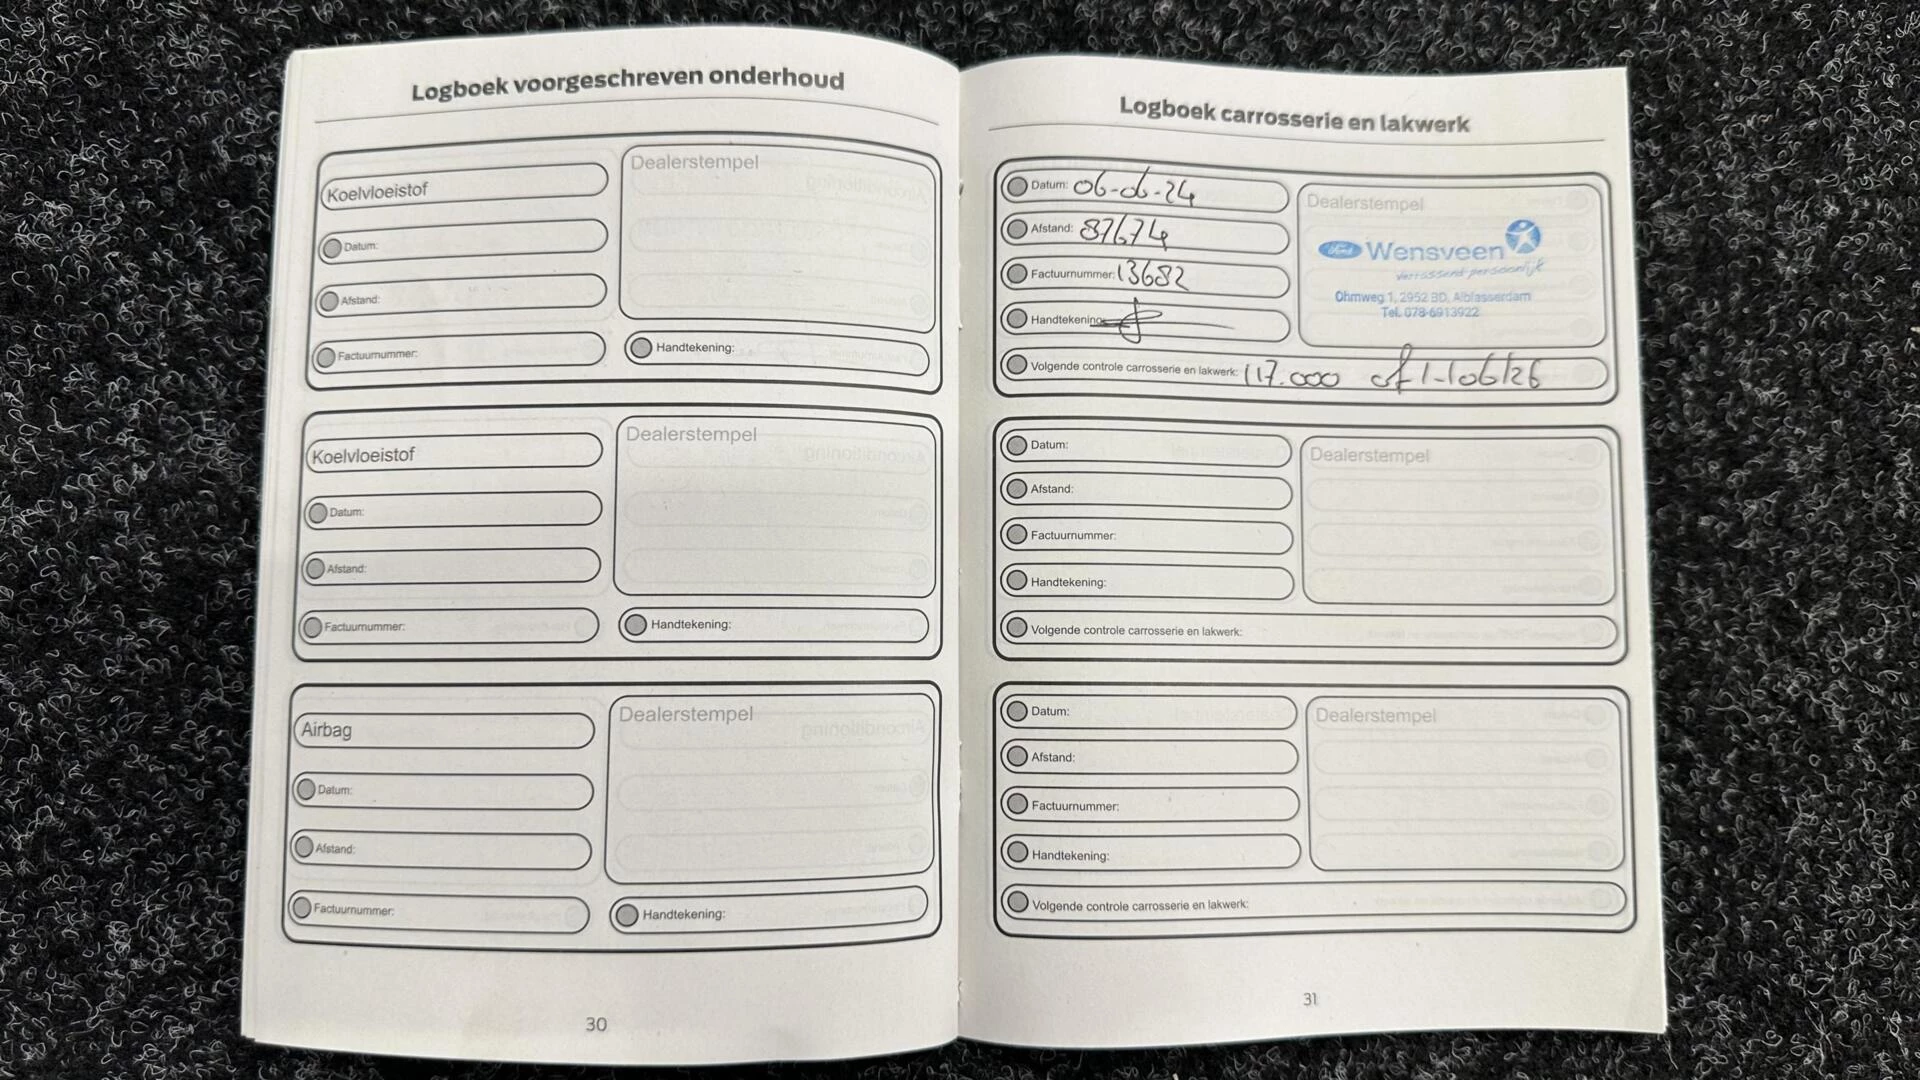 Logboek voorgeschreven onderhoud
Koelvloeistof
Dealerstempel
Datum:
Afstand:
Factuurnummer:
Handtekening:
Koelvloeistof
Dealerstempel
Datum:
Afstand:
Factuurnummer:
Handtekening:
Airbag
Dealerstempel
Datum:
Afstand:
Factuurnummer:
Handtekening:
30
Logboek carrosserie en lakwerk
Datum: 06-06-24
Dealerstempel
Afstand: 87674
Ford Wensveen
verrassend persoonlijk
Factuurnummer: 13682
Ohmweg 1, 2952 BD, Alblasserdam
Tel. 078-6913922
Handtekening:
Volgende controle carrosserie en lakwerk: 117.000 of
Datum:
Dealerstempel
Afstand:
Factuurnummer:
Handtekening:
Volgende controle carrosserie en lakwerk:
Datum:
Dealerstempel
Afstand:
Factuurnummer:
Handtekening:
Volgende controle carrosserie en lakwerk:
31